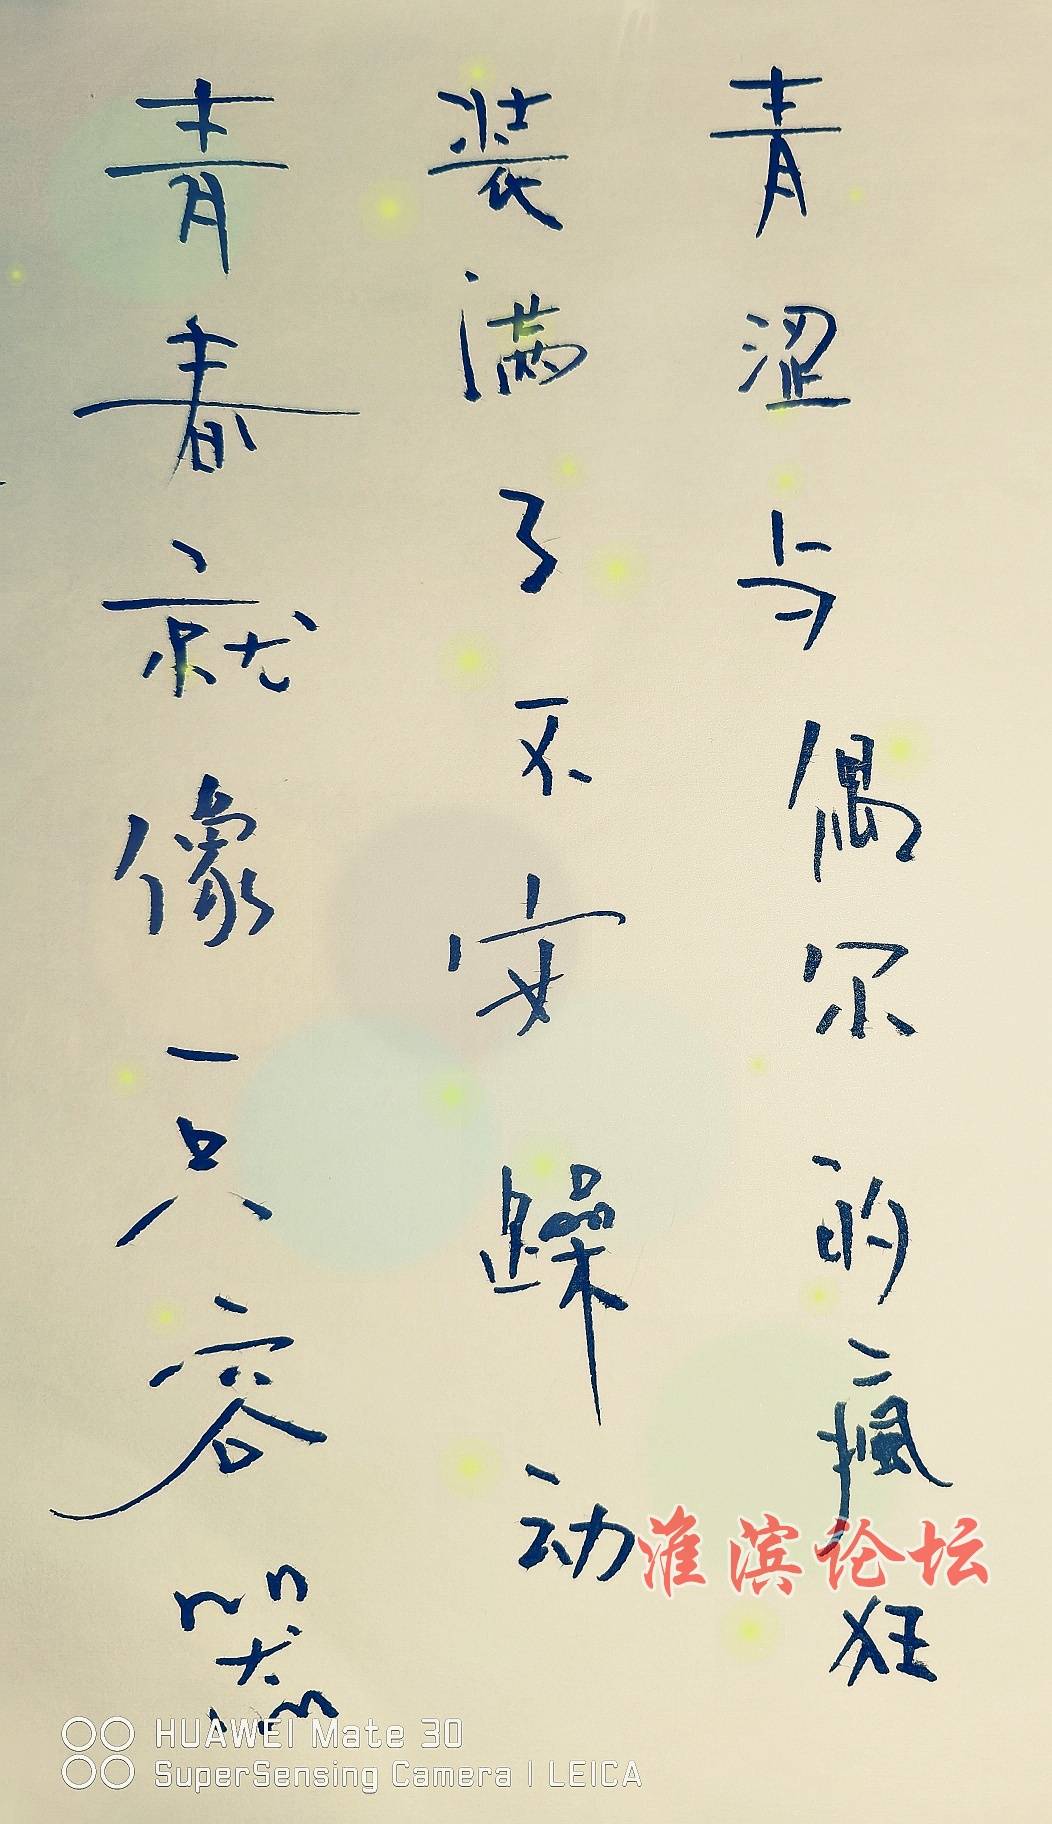 青春就像一只容器
装满了不安躁动
青涩与偶尔的瘋狂
淮滨论坛
HUAWEI Mate 30
SuperSensing Camera | LEICA